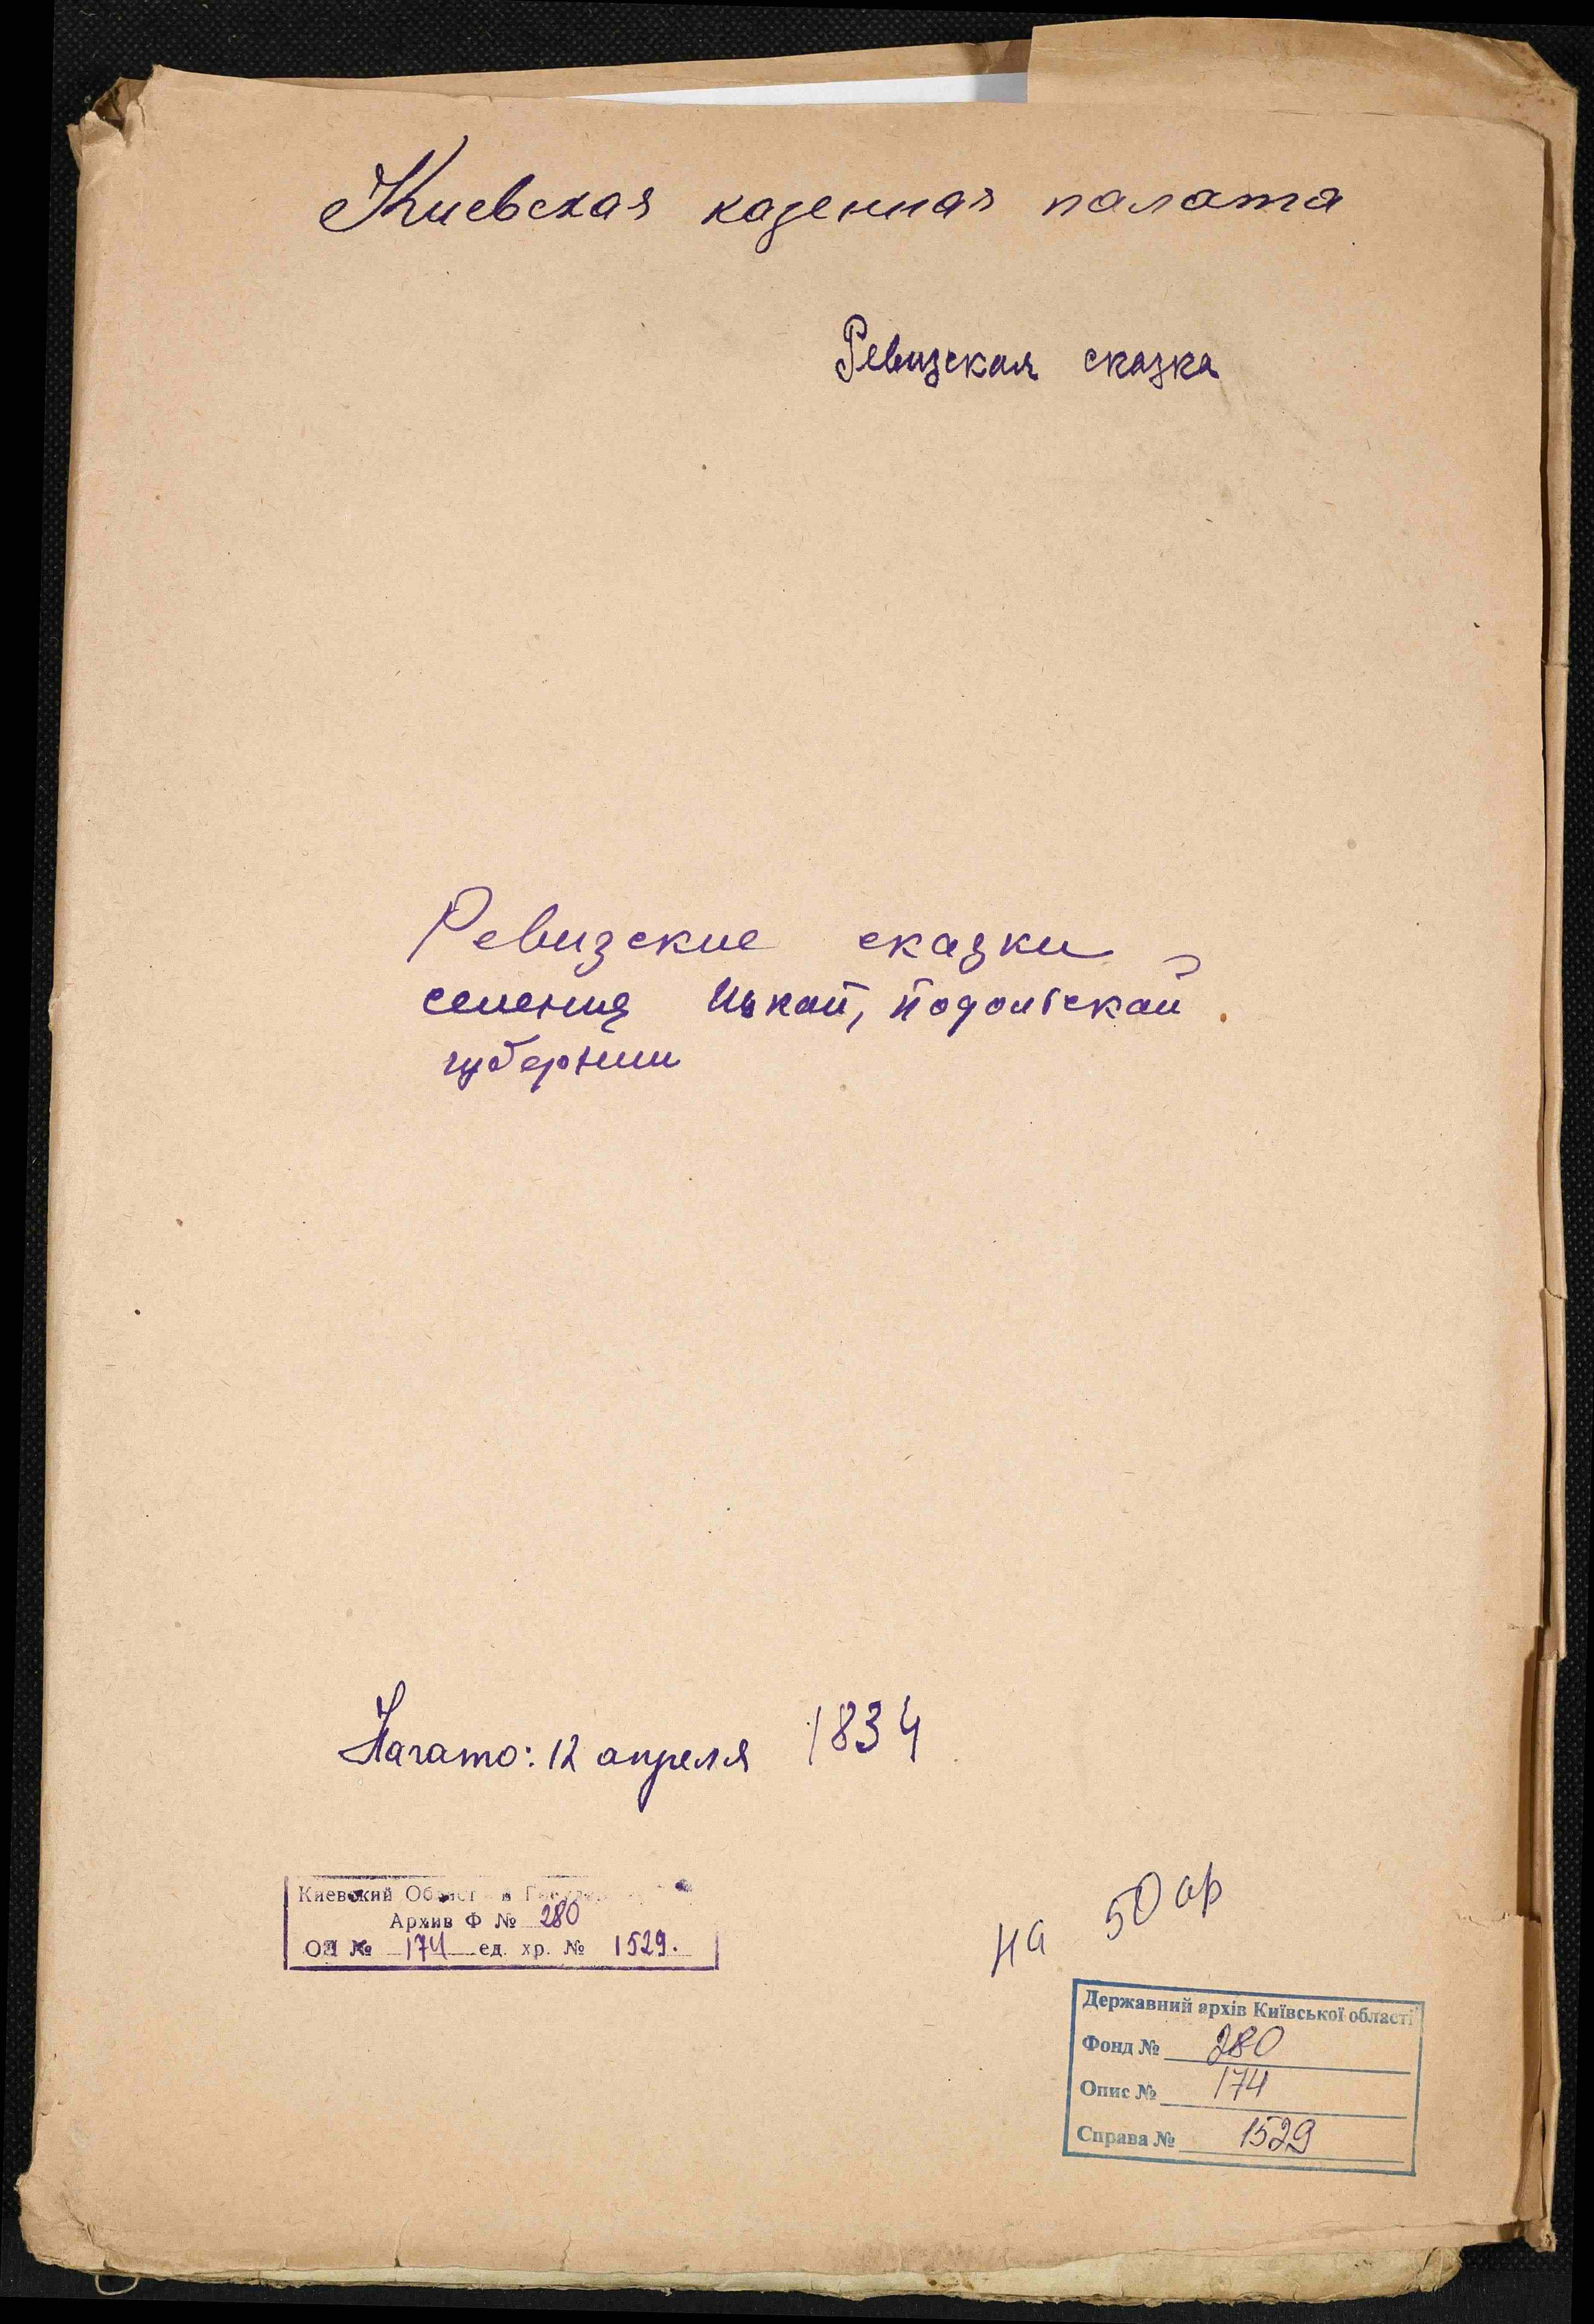 Киевская казенная палата
Ревизская сказка
Ревизские сказки
селения Подольской
губернии
Начато: 12 апреля 1834
Киевский
Архив Ф № 280
ОП № 174 ед. хр. № 1529.
на 50 ар
Державний архів Київської області
Фонд № 280
Опис № 174
Справа № 1529